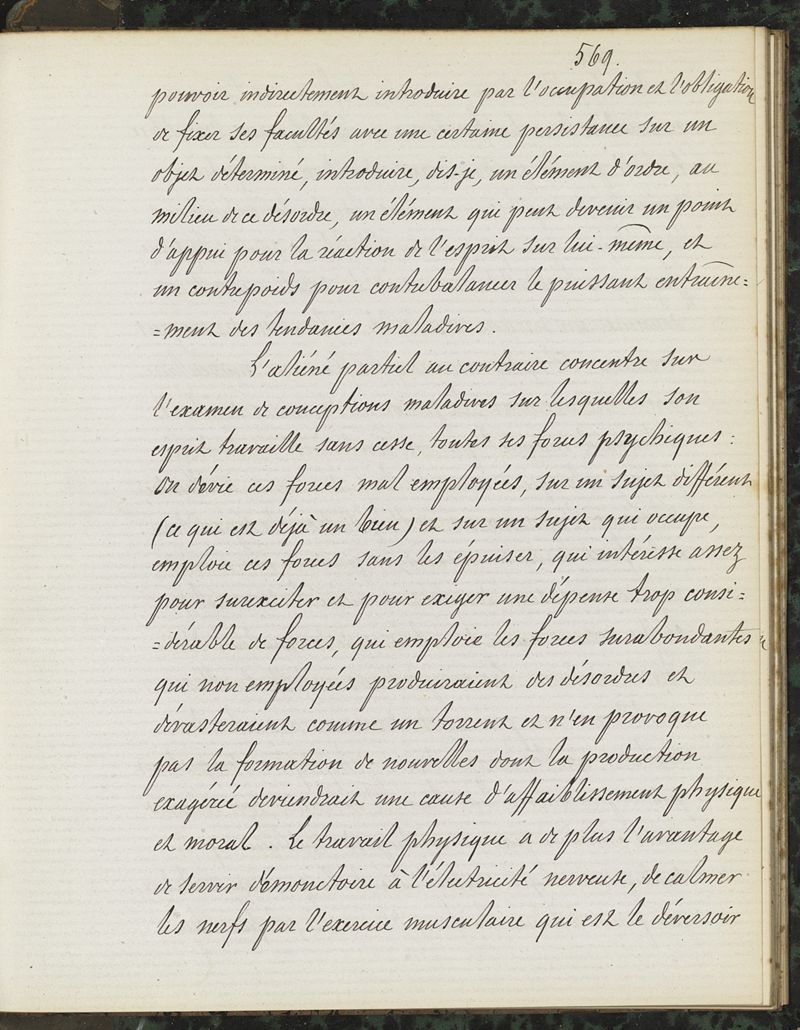 569.
pouvoir indirectement introduire par l'occupation et l'obligation
de fixer ses facultés avec une certaine persistance sur un
objet déterminé, introduire, dis-je, un élément d'ordre, au
milieu de ce désordre, un élément qui peut devenir un point
d'appui pour la réaction de l'esprit sur lui-même, et
un contrepoids pour contrebalancer le puissant entraîne=
=ment des tendances maladives.
L'aliéné partiel au contraire concentre sur
l'examen de conceptions maladives sur lesquelles son
esprit travaille sans cesse, toutes ses forces psychiques:
On dévie ces forces mal employées, sur un sujet différent
(ce qui est déjà un bien) et sur un sujet qui occupe,
emploie ces forces sans les épuiser, qui intéresse assez
pour surexciter et pour exiger une dépense trop consi=
=dérable de forces, qui emploie les forces surabondantes
qui non employées produiraient des désordres et
dévasteraient comme un torrent et n'en provoque
pas la formation de nouvelles dont la production
exagérée deviendrait une cause d'affaiblissement physique
et moral. Le travail physique a de plus l'avantage
de servir d'émonctoire à l'électricité nerveuse, de calmer
les nerfs par l'exercice musculaire qui est le déversoir